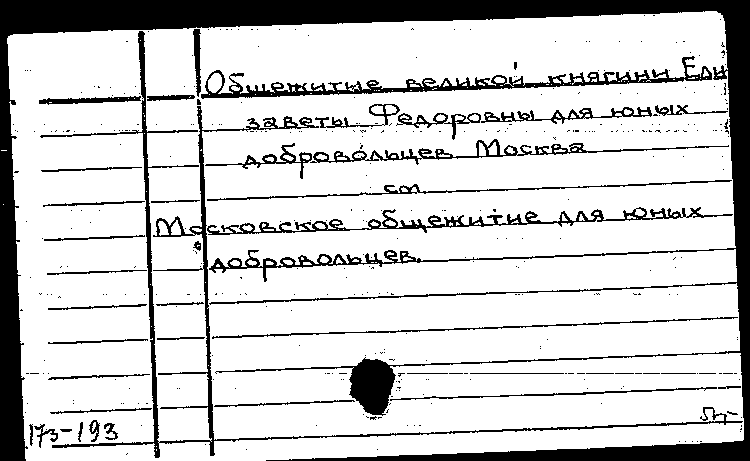 Общежитие великой княгини Ели
заветы Федоровны для юных
добровольцев Москва
см.
Московское общежитие для юных
добровольцев.
173-193